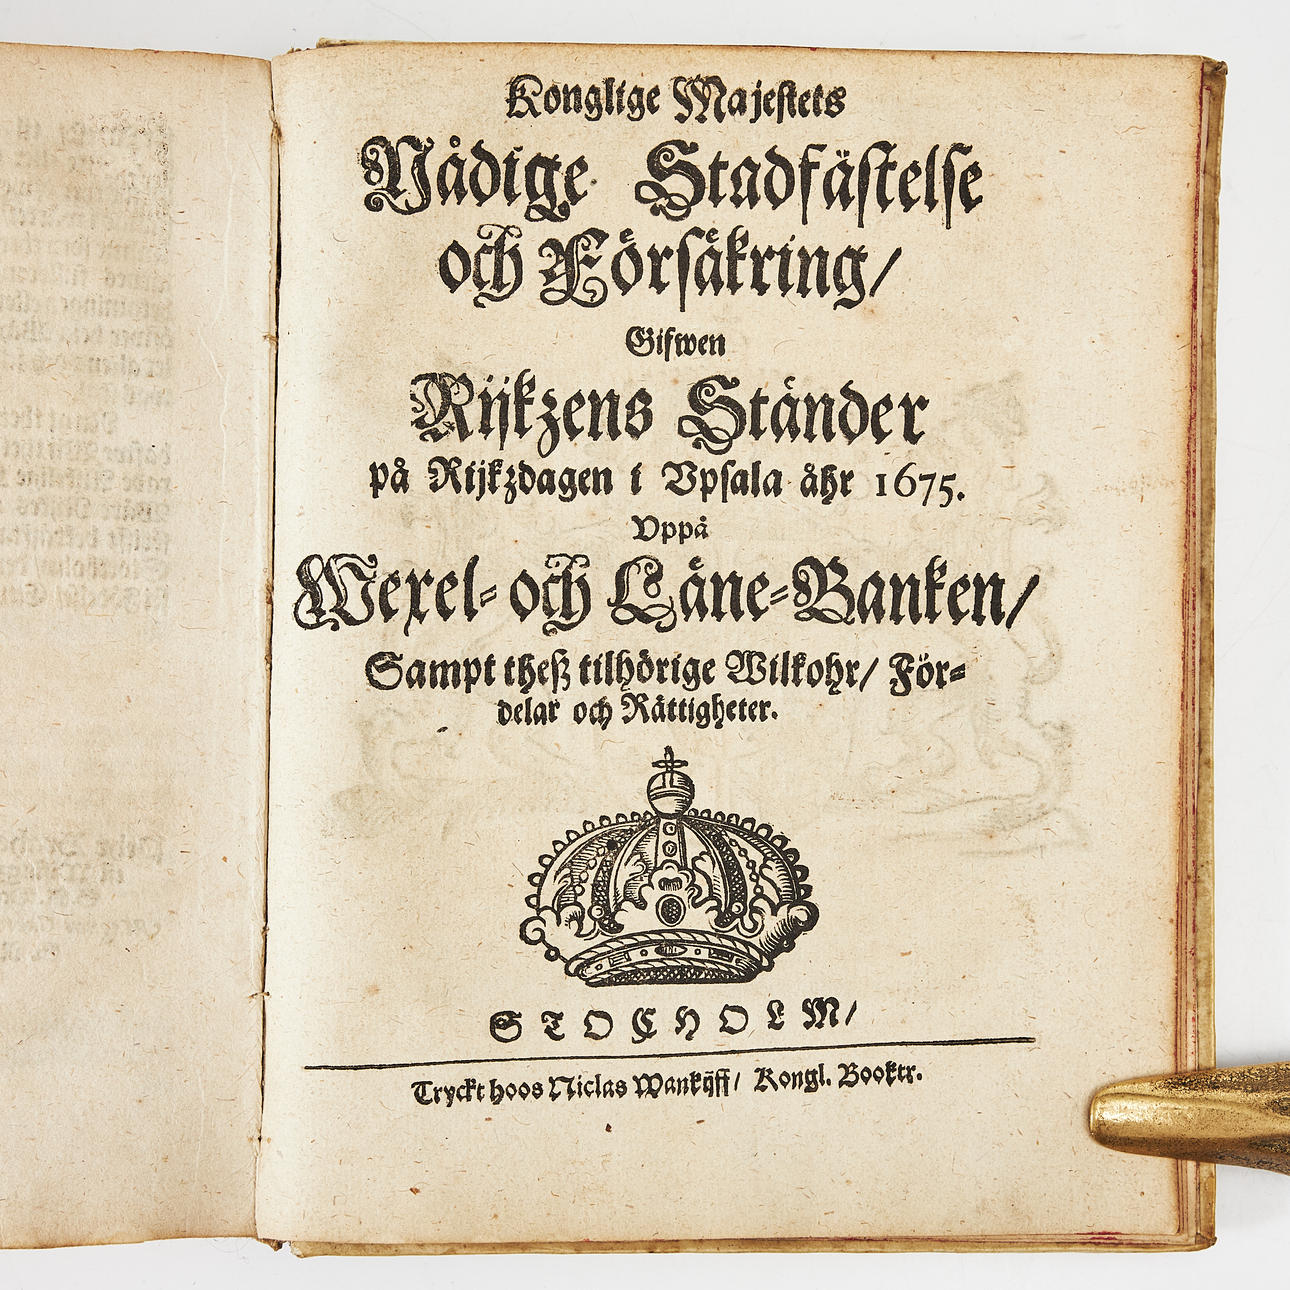 Konglige Majestets
Nådige Stadfästelse
och Försäkring/
Gifwen
Rijkzens Ständer
på Rijkzdagen i Vpsala åhr 1675.
Vppå
Wexel- och Läne-Banken/
Sampt theß tilhörige Wilkohr/ För-
delar och Rättigheter.
STOCHOLM/
Tryckt hoos Niclas Wankijff/ Kongl. Booktr.